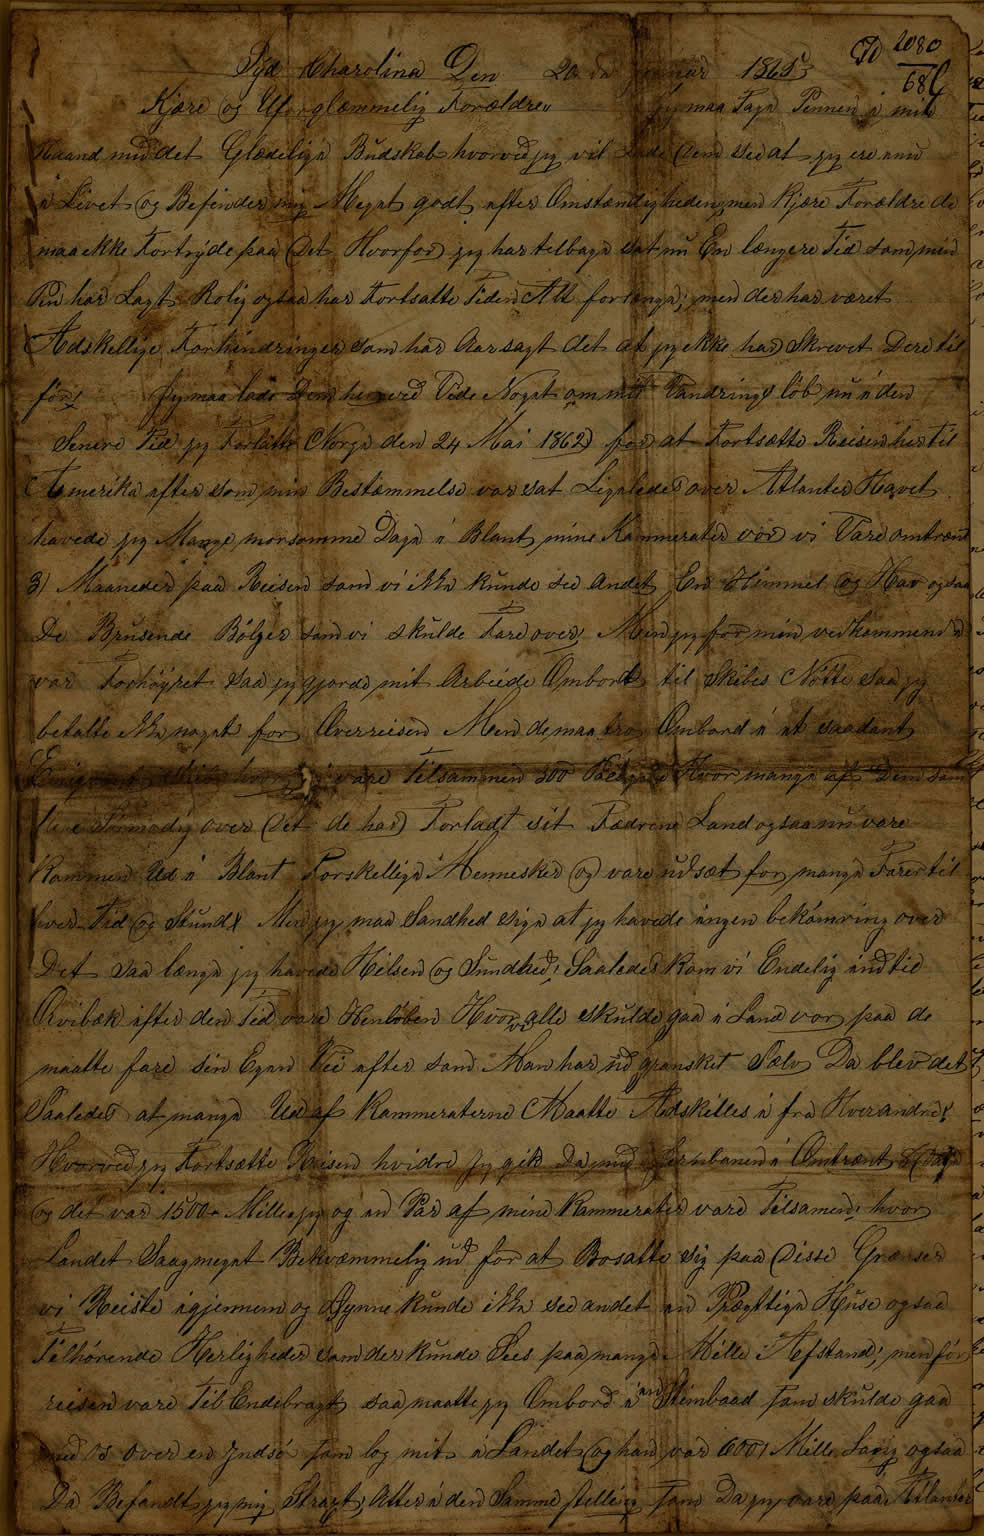 Syd Charolina Den 20 de Januar 1865
No 2080
68
Kjære og Uforglæmmelig Forældre Jeg maa Tage Pennen i min
Haand med det Glædelige Budskab hvorved jeg vil Lade Dem see at jeg ere ennu
i Livet og Befinder mig Meget godt efter Omstændighedene, men Kjære Forældre de
maa ekke Fortryde paa Det Hvorfor jeg har tilbage sat nu En længere Tid som min
Pen har Lagt Rolig ogsaa har Fortsatte Tiden Alt forlænge, men der har været
Adskellige Forhindringer som har Aarsagt det at jeg ekke har Skrevet Dere til
för, Jeg maa lade Dem herved Vide Noget om mit Vandrings löb nu i den
Senere Tid jeg Forlatte Norge den 24 Mai 1862 for at Fortsætte Reisen her til
Amerika efter som min Bestæmmelse var sat Ligeledes over Atlanter Havet
havede jeg Mange morsomme Dage i Blant mine Kammerater vor vi Vare omtrænt
3 Maaneder paa Reisen som vi ikke kunde see andet En Himmel og Hav ogsaa
De Brusende Bölger som vi skulde Fare over, Men jeg for min vedkommende
var Forhöyret saa jeg gjorde mit Arbeide Ombord til Skibes Nötte saa jeg
betalte ikke noget for Overreisen Men de maa tro Ombord i et saadant
vare Tilsammen 300 Hvor mange af Dem som
over Det de har Forladt sit Fædrene Land ogsaa nu vare
Kommen Ud i Blant Forskellige Mennesker og vare udsæt for mange Farer til
hver Tid og Stund Men jeg maa Sandhed sige at jeg havede ingen bekömring over
Det saa længe jeg havede Helsen og Sundhed, Saaledes kom vi Endelig ind tie
Qvibæk efter den Tid vare Henlöben Hvor vi alle skulde gaa i Land vor paa de
maatte fare sin Egen Vei efter som Man har udgransket Sælv Da blev det
Saaledes at mange Ud af Kammeraterne Maatte Adskilles i fra Hverandre
Hvorved jeg Fortsætte Reisen hvidre jeg gik Da med Jernbanen i Omtrænt
og det var 1500 Mille jeg og en Par af mine Kammerater vare Tilsamen, hvor
Landet Saag meget Bekvæmmelig ud for at Bosatte sig paa Disse Grænser
vi Reiste igjennem og Öynne kunde ikke see andet en Prægttige Huse ogsaa
Tilhörende Herligheder som der kunde Sees paa mange Mille i Afstand, men för
reisen vare Til Endebragt saa maatte jeg Ombord i en Stimbaad som skulde gaa
med os over en Jndsö som log mit i Landet og han var 600 Mille Lang ogsaa
Da Befandt jeg mig Straxt Atter i den Samme stelling som Da jeg vare paa Atlanter